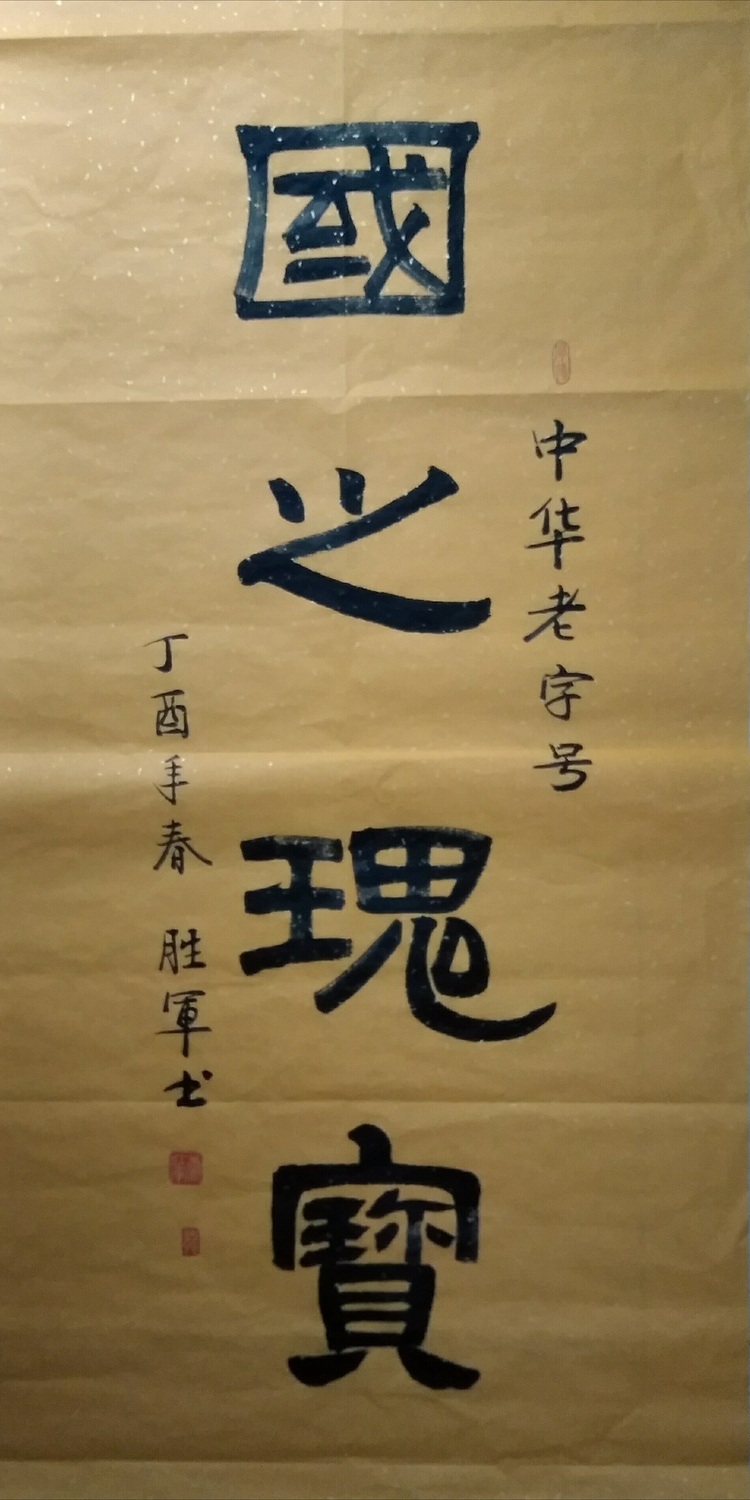 中华老字号
國之瑰寶
丁酉年春 胜軍书